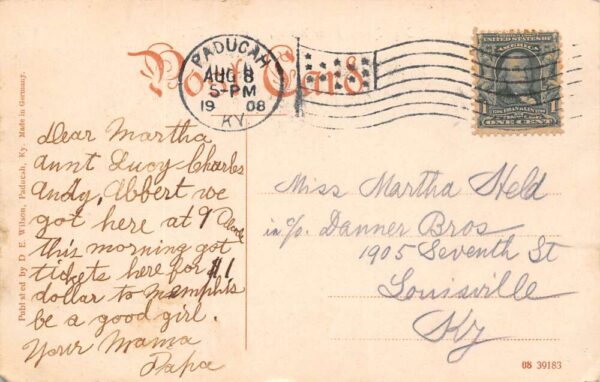 Post Card
PADUCAH
AUG 8
5-PM
1908
KY
UNITED STATES OF
AMERICA
1 1
ONE CENT
Published by D. E. Wilson, Paducah, Ky. Made in Germany.
Dear Martha
Aunt Lucy Charles
Andy, Albert we
got here at 9 Oclock
this morning got
tickets here for $1
dollar to Memphis
be a good girl.
Your Mama
Papa
Miss Martha Held
in c/o. Danner Bros
1905 Seventh St
Louisville
Ky
08 39183